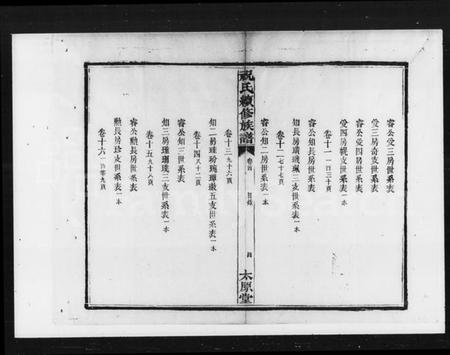 睿公受三房世系表
受三房奇支世系表
睿公受四房世系表
受四房魏支世系表二本
卷十一 一百三十頁
睿公知長房世系表
知長房 三支世系表一本
卷十二 七十七頁
睿公知二房世系表
祝氏續修族譜
卷首
目錄
四
太原堂
卷十三 九十六頁
知二房 五支世系表一本
卷十四 八十二頁
睿公知三世系表
知三房 三支世系表一本
卷十五 九十八頁
睿公勲長房世系表
勲長房珍支世系表一本
卷十六 一百零九頁